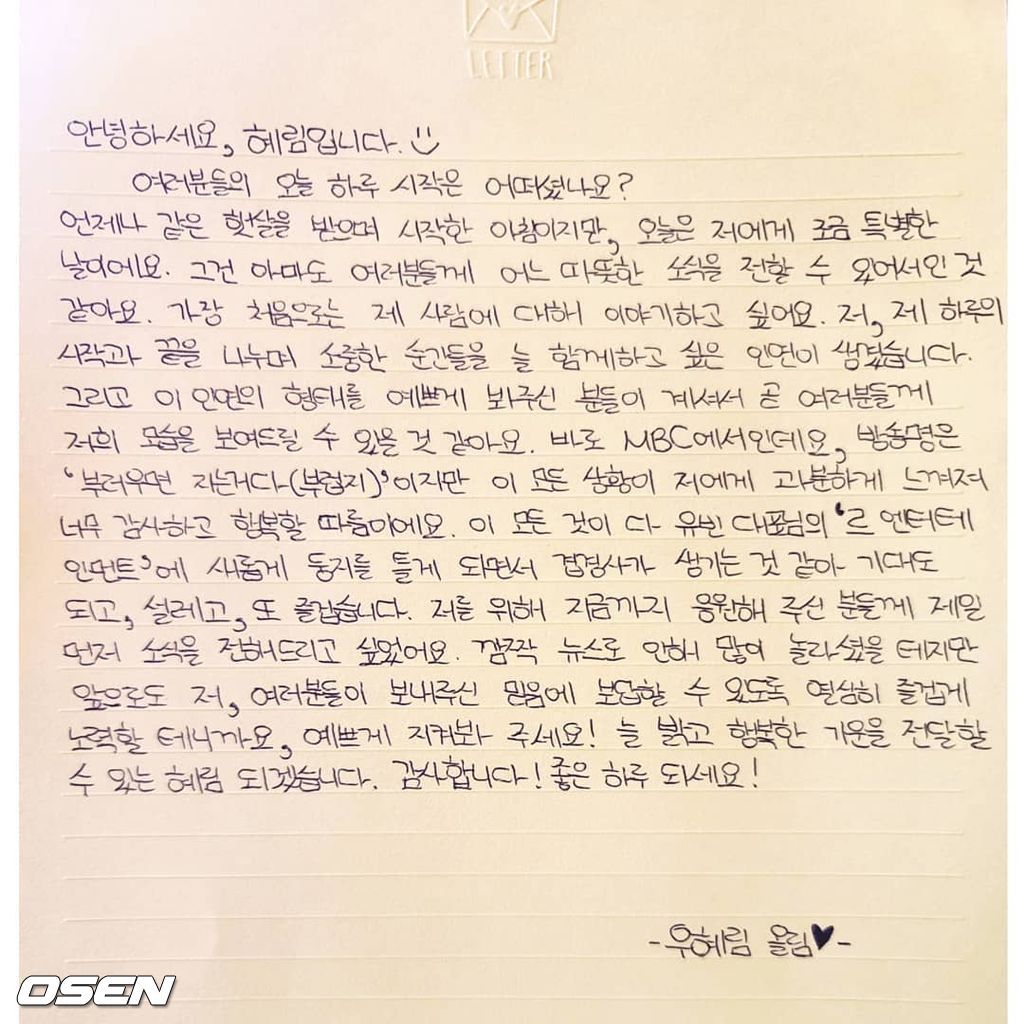 LETTER
안녕하세요, 혜림입니다.
여러분들의 오늘 하루 시작은 어떠셨나요?
언제나 같은 햇살을 받으며 시작한 아침이지만, 오늘은 저에게 조금 특별한
날이에요. 그건 아마도 여러분들께 어느 따뜻한 소식을 전할 수 있어서인 것
같아요. 가장 처음으로는 제 사람에 대해 이야기하고 싶어요. 저, 제 하루의
시작과 끝을 나누며 소중한 순간들을 늘 함께하고 싶은 인연이 생겼습니다.
그리고 이 인연의 형태를 예쁘게 봐주신 분들이 계셔서 곧 여러분들께
저희 모습을 보여드릴 수 있을 것 같아요. 바로 MBC에서인데요, 방송명은
'부러우면 지는거다(부럽지)'이지만 이 모든 상황이 저에게 과분하게 느껴져
너무 감사하고 행복할 따름이에요. 이 모든 것이 다 유빈 대표님의 '르 엔터테
인먼트'에 새롭게 둥지를 틀게 되면서 겹경사가 생기는 것 같아 기대도
되고, 설레고, 또 즐겁습니다. 저를 위해 지금까지 응원해 주신 분들께 제일
먼저 소식을 전해드리고 싶었어요. 깜짝 뉴스로 인해 많이 놀라셨을 테지만
앞으로도 저, 여러분들이 보내주신 믿음에 보답할 수 있도록 열심히 즐겁게
노력할 테니까요, 예쁘게 지켜봐 주세요! 늘 밝고 행복한 기운을 전달할
수 있는 혜림 되겠습니다. 감사합니다! 좋은 하루 되세요!
-우혜림 올림♥-
OSEN